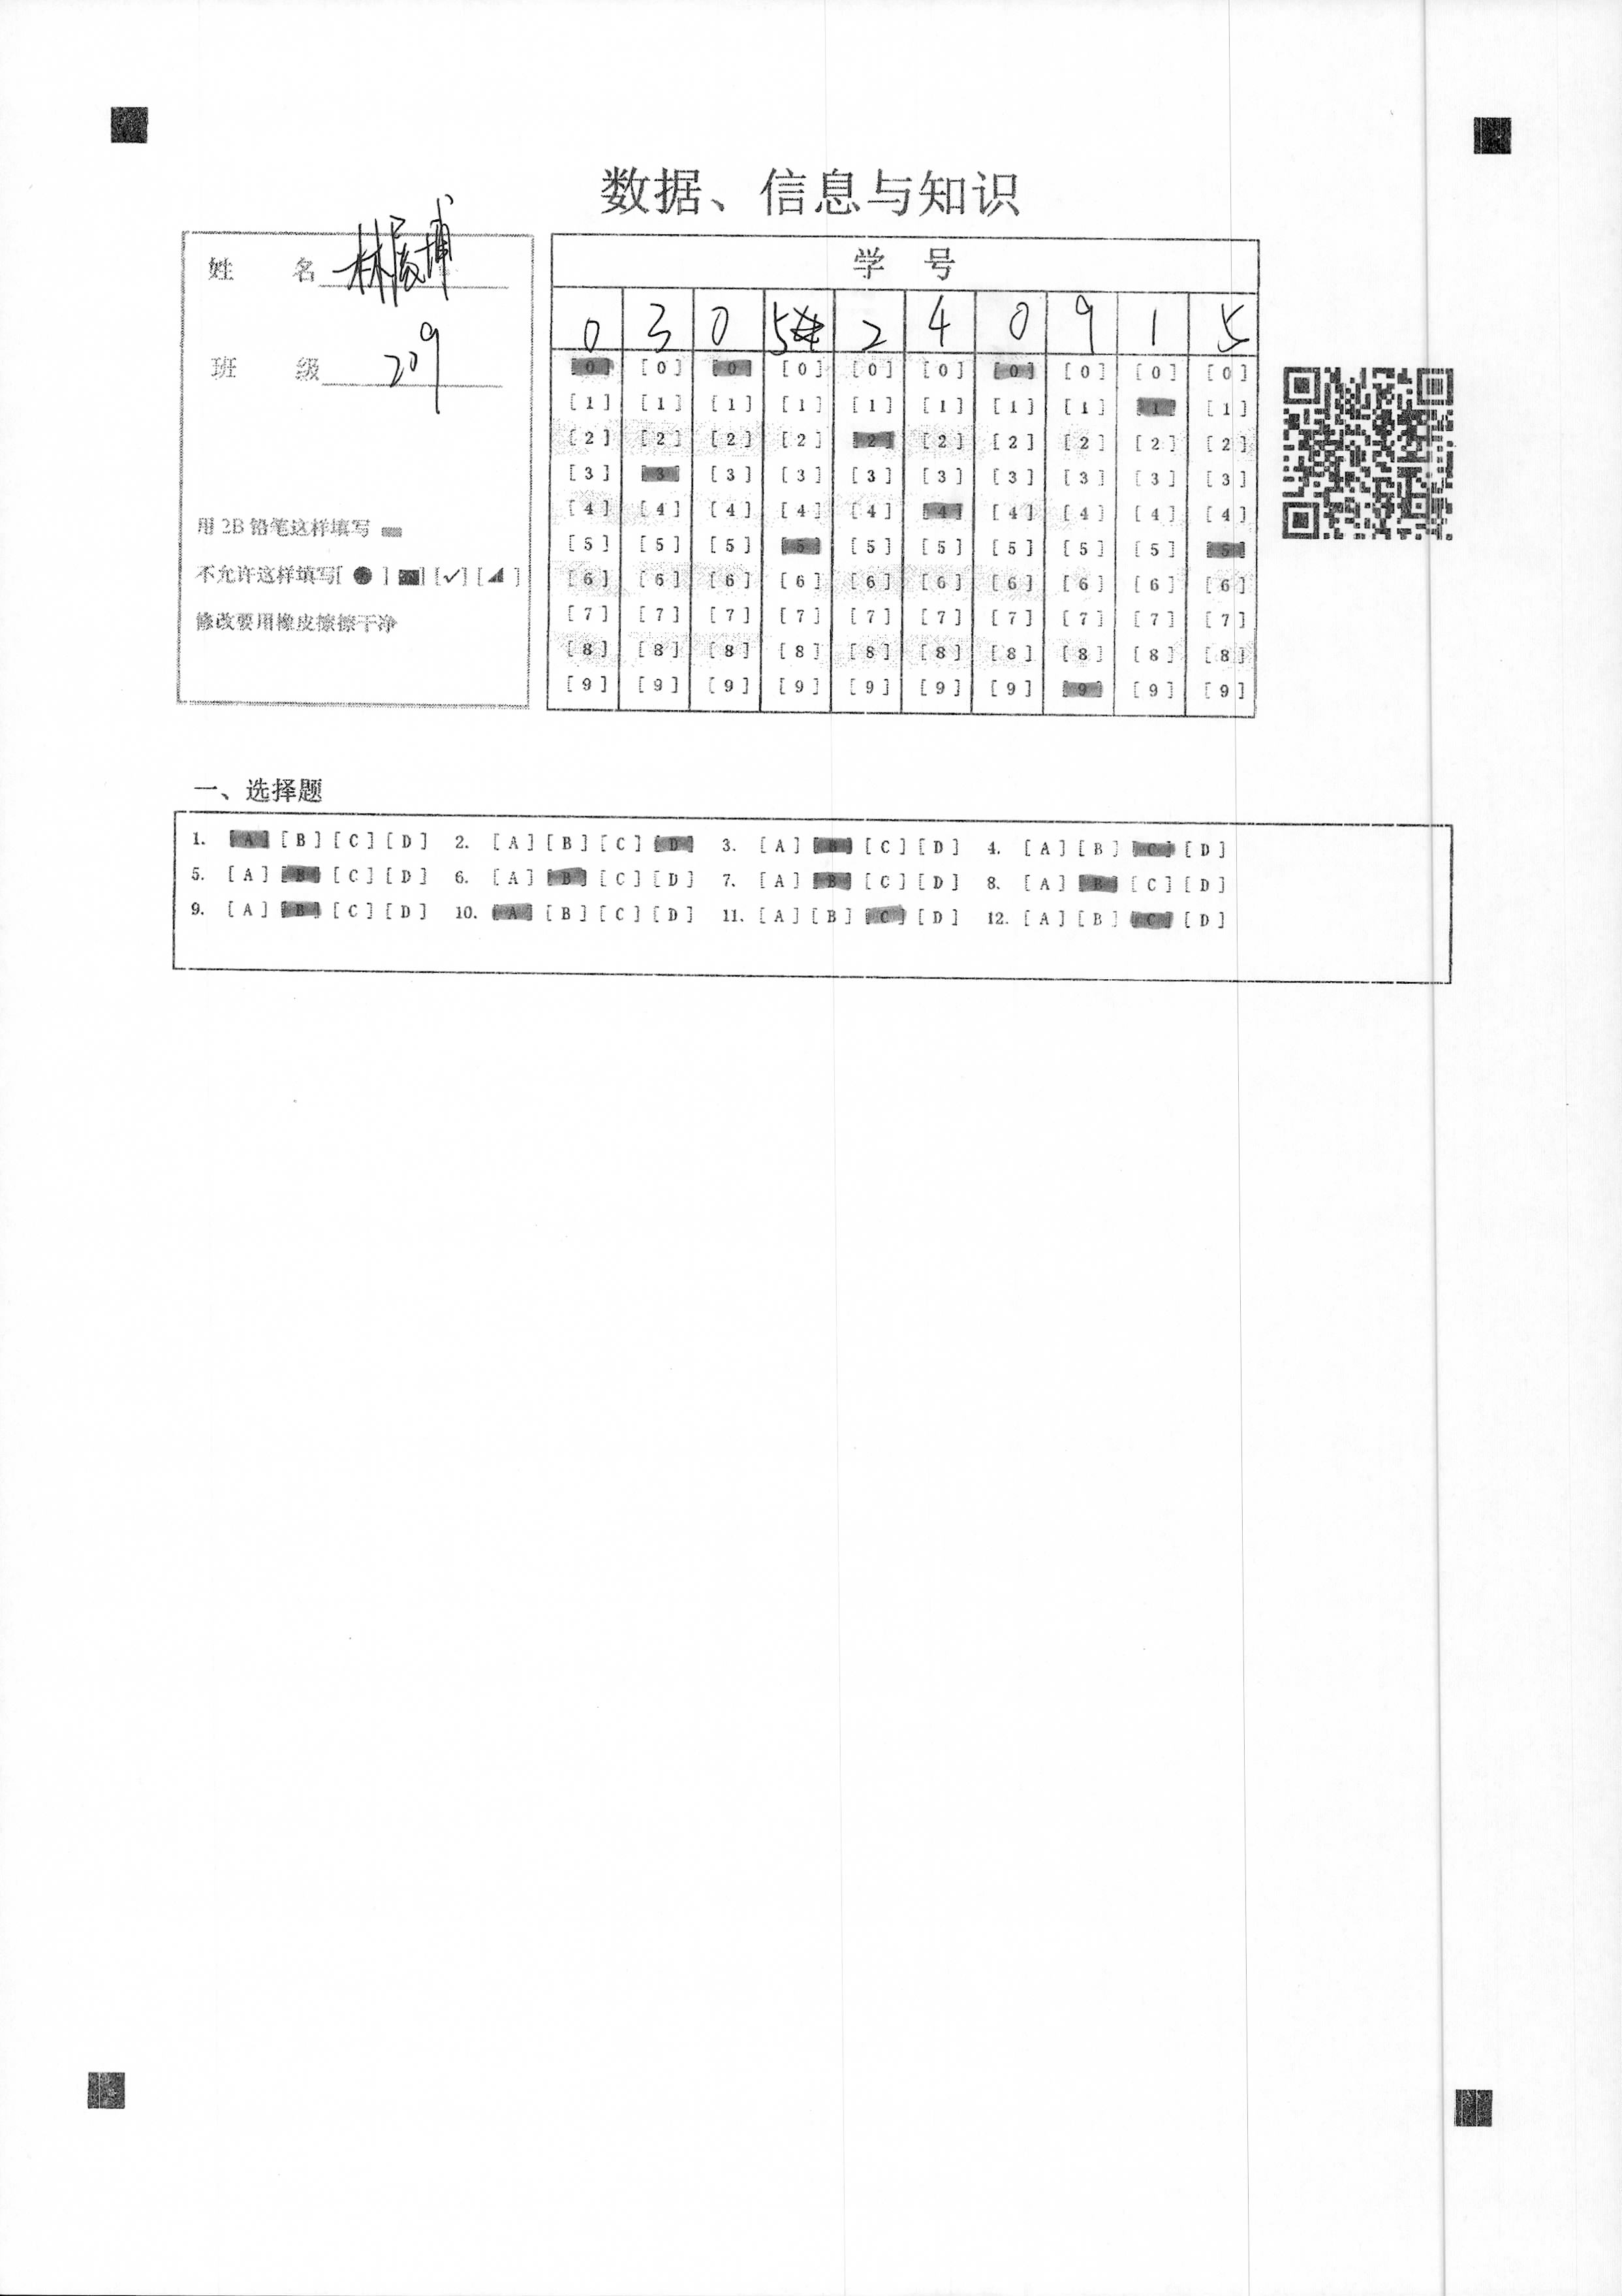 数据、信息与知识
姓 名 林宸博
班 级 209
用 2B 铅笔这样填写
不允许这样填写[ ● ] [■] [✓] [◢ ]
修改要用橡皮擦擦干净
学 号
0 3 0 5 2 4 0 9 1 5
[0] [0] [0] [0] [0] [0] [0] [0] [0] [0]
[1] [1] [1] [1] [1] [1] [1] [1] [1] [1]
[2] [2] [2] [2] [2] [2] [2] [2] [2] [2]
[3] [3] [3] [3] [3] [3] [3] [3] [3] [3]
[4] [4] [4] [4] [4] [4] [4] [4] [4] [4]
[5] [5] [5] [5] [5] [5] [5] [5] [5] [5]
[6] [6] [6] [6] [6] [6] [6] [6] [6] [6]
[7] [7] [7] [7] [7] [7] [7] [7] [7] [7]
[8] [8] [8] [8] [8] [8] [8] [8] [8] [8]
[9] [9] [9] [9] [9] [9] [9] [9] [9] [9]
一、选择题
1. [A] [B] [C] [D] 2. [A] [B] [C] [D] 3. [A] [B] [C] [D] 4. [A] [B] [C] [D]
5. [A] [B] [C] [D] 6. [A] [B] [C] [D] 7. [A] [B] [C] [D] 8. [A] [B] [C] [D]
9. [A] [B] [C] [D] 10. [A] [B] [C] [D] 11. [A] [B] [C] [D] 12. [A] [B] [C] [D]